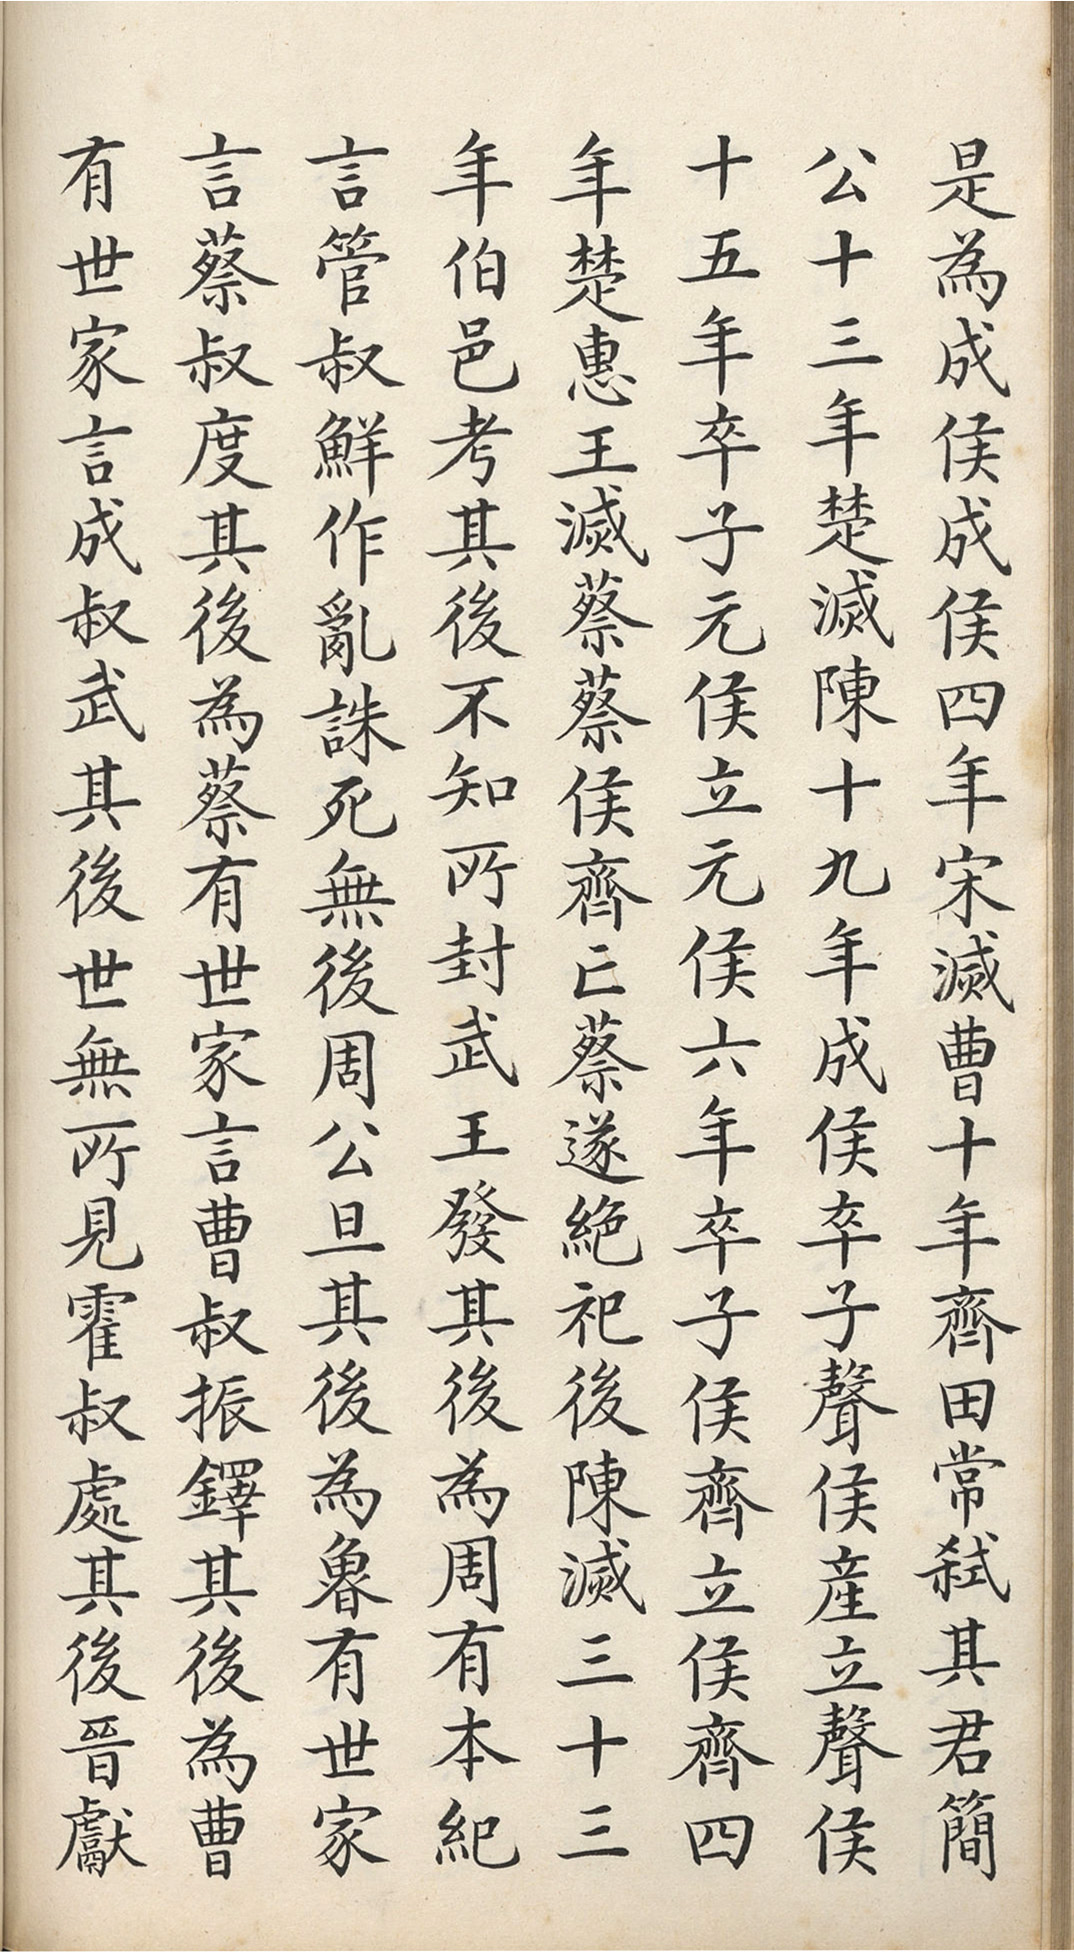 是為成侯成侯四年宋滅曹十年齊田常弑其君簡
公十三年楚滅陳十九年成侯卒子聲侯產立聲侯
十五年卒子元侯立元侯六年卒子侯齊立侯齊四
年楚惠王滅蔡蔡侯齊亡蔡遂絕祀後陳滅三十三
年伯邑考其後不知所封武王發其後為周有本紀
言管叔鮮作亂誅死無後周公旦其後為魯有世家
言蔡叔度其後為蔡有世家言曹叔振鐸其後為曹
有世家言成叔武其後世無所見霍叔處其後晉獻